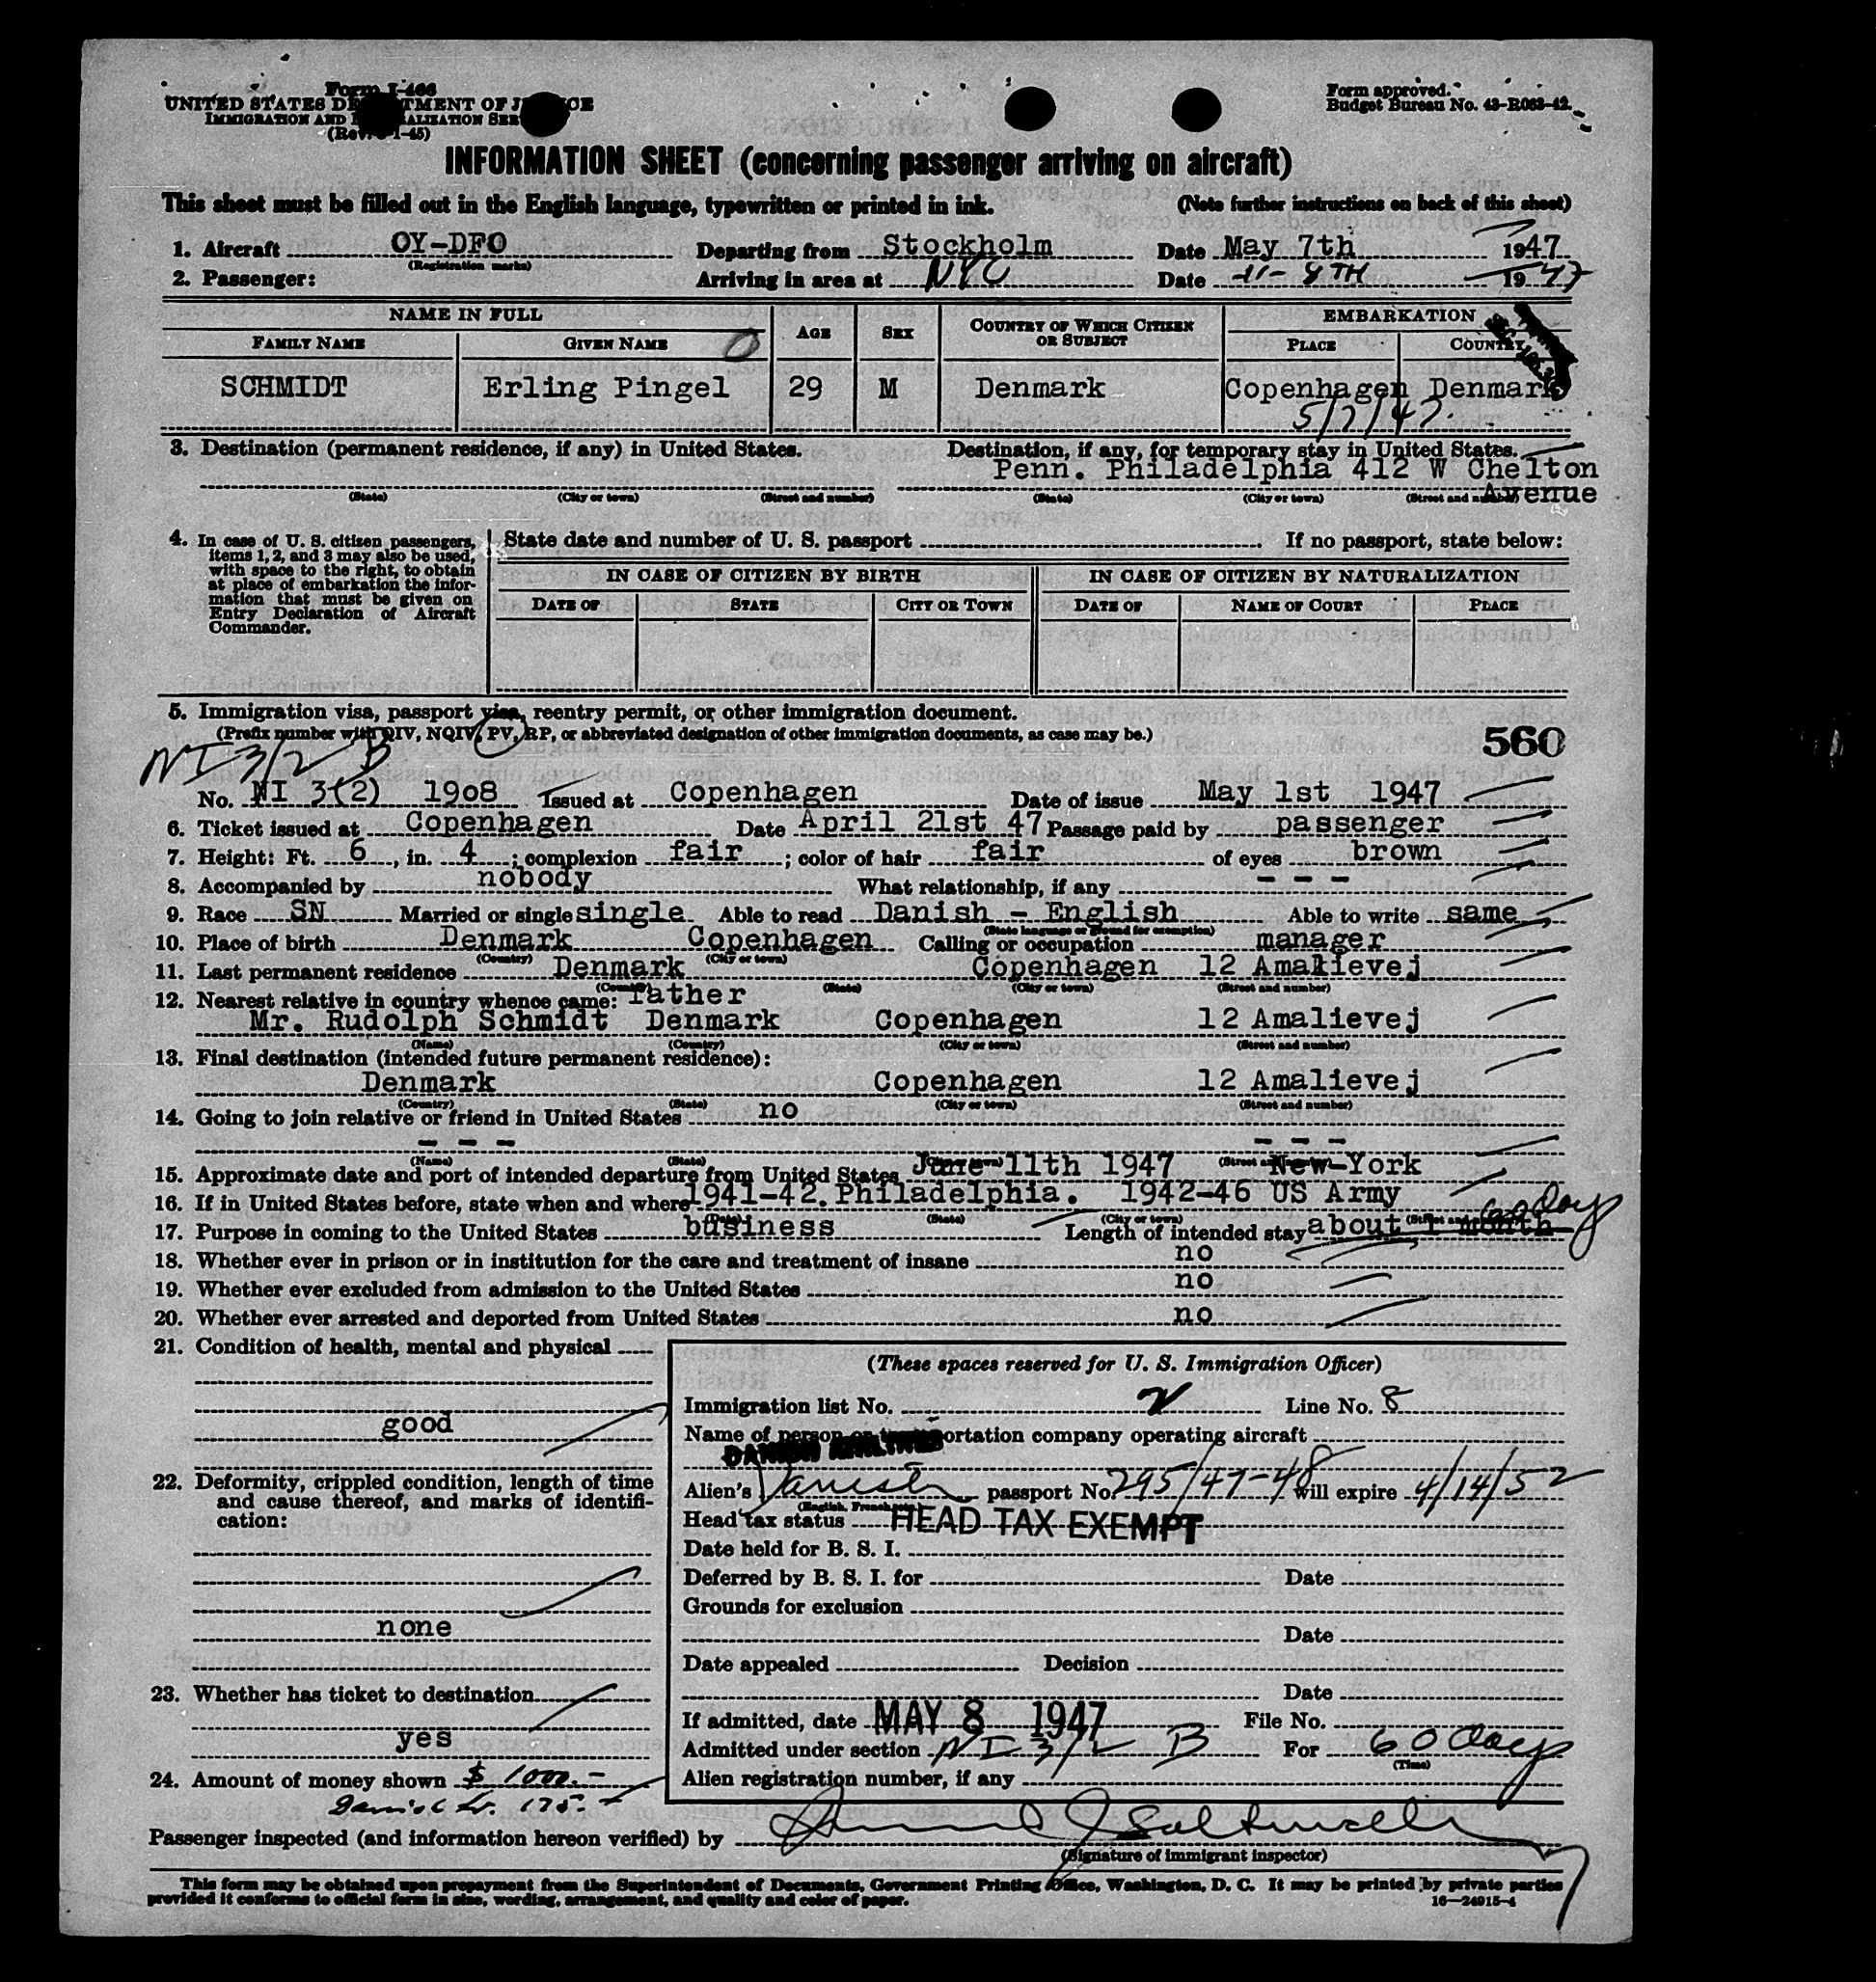 Form I-466
UNITED STATES DEPARTMENT OF JUSTICE
IMMIGRATION AND NATURALIZATION SERVICE
(Rev. 1-45)
Form approved.
Budget Bureau No. 43-R063-42.
INFORMATION SHEET (concerning passenger arriving on aircraft)
This sheet must be filled out in the English language, typewritten or printed in ink. (Note further instructions on back of this sheet)
1. Aircraft OY-DFO Departing from Stockholm Date May 7th 1947
(Registration marks)
2. Passenger: Arriving in area at NYC Date 8TH 1947
NAME IN FULL AGE SEX COUNTRY OF WHICH CITIZEN OR SUBJECT EMBARKATION
FAMILY NAME GIVEN NAME PLACE COUNTRY
SCHMIDT Erling Pingel 29 M Denmark Copenhagen Denmark
5/7/47.
3. Destination (permanent residence, if any) in United States. Destination, if any, for temporary stay in United States.
Penn. Philadelphia 412 W Chelton
Avenue
(State) (City or town) (Street and number) (State) (City or town) (Street and number)
4. In case of U. S. citizen passengers, items 1, 2, and 3 may also be used, with space to the right, to obtain at place of embarkation the information that must be given on Entry Declaration of Aircraft Commander.
State date and number of U. S. passport. If no passport, state below:
IN CASE OF CITIZEN BY BIRTH IN CASE OF CITIZEN BY NATURALIZATION
DATE OF STATE CITY OR TOWN DATE OF NAME OF COURT PLACE
5. Immigration visa, passport visa, reentry permit, or other immigration document.
(Prefix number with QIV, NQIV, PV, RP, or abbreviated designation of other immigration documents, as case may be.)
560
NI 3/2 B
No. NI 3(2) 1908 Issued at Copenhagen Date of issue May 1st 1947
6. Ticket issued at Copenhagen Date April 21st 47 Passage paid by passenger
7. Height: Ft. 6, in. 4; complexion fair; color of hair fair of eyes brown
8. Accompanied by nobody What relationship, if any - - -
9. Race SN Married or single single Able to read Danish - English Able to write same
(State language or ground for exemption)
10. Place of birth Denmark Copenhagen Calling or occupation manager
(Country) (City or town)
11. Last permanent residence Denmark Copenhagen 12 Amalievej
(Country) (State) (City or town) (Street and number)
12. Nearest relative in country whence came: father
Mr. Rudolph Schmidt Denmark Copenhagen 12 Amalievej
(Name) (Country) (City or town) (Street and number)
13. Final destination (intended future permanent residence):
Denmark Copenhagen 12 Amalievej
(Country) (State) (City or town) (Street and number)
14. Going to join relative or friend in United States no
- - - - - -
(Name) (State) (City or town) (Street and number)
15. Approximate date and port of intended departure from United States June 11th 1947 New-York
16. If in United States before, state when and where 1941-42. Philadelphia. 1942-46 US Army
(Date) (State) (City or town) (Street and number)
60 days
17. Purpose in coming to the United States business Length of intended stay about 1 month
18. Whether ever in prison or in institution for the care and treatment of insane no
19. Whether ever excluded from admission to the United States no
20. Whether ever arrested and deported from United States no
21. Condition of health, mental and physical
good
22. Deformity, crippled condition, length of time and cause thereof, and marks of identification:
none
23. Whether has ticket to destination
yes
24. Amount of money shown $ 1000.-
Danish kr. 175.-
(These spaces reserved for U. S. Immigration Officer)
Immigration list No. Line No. 8
Name of person or transportation company operating aircraft
DANISH AIRLINES
Alien's Danish passport No. 295/47-48 will expire 4/14/52
(English, French, etc.)
Head tax status HEAD TAX EXEMPT
Date held for B. S. I.
Deferred by B. S. I. for Date
Grounds for exclusion
Date
Date appealed Decision
Date
If admitted, date MAY 8 1947 File No.
Admitted under section NI 3/2 B For 60 days
(Time)
Alien registration number, if any
Passenger inspected (and information hereon verified) by
(Signature of immigrant inspector)
This form may be obtained upon prepayment from the Superintendent of Documents, Government Printing Office, Washington, D. C. It may be printed by private parties
provided it conforms to official form in size, wording, arrangement, and quality and color of paper.
16—24915-4